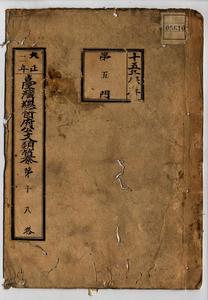 大正二年
臺灣總督府公文類纂 第十八卷
十五年保存
第五門
05610